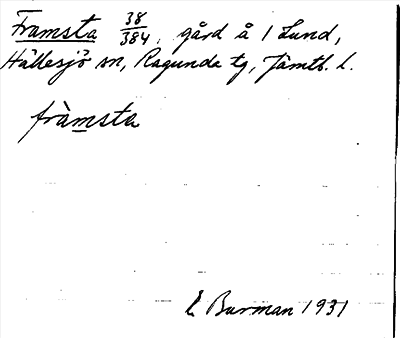 Framsta 38/384, gård å 1 Lund,
Hällesjö sn, Ragunda tg, Jämtl. l.
fràmsta
E Burman 1931